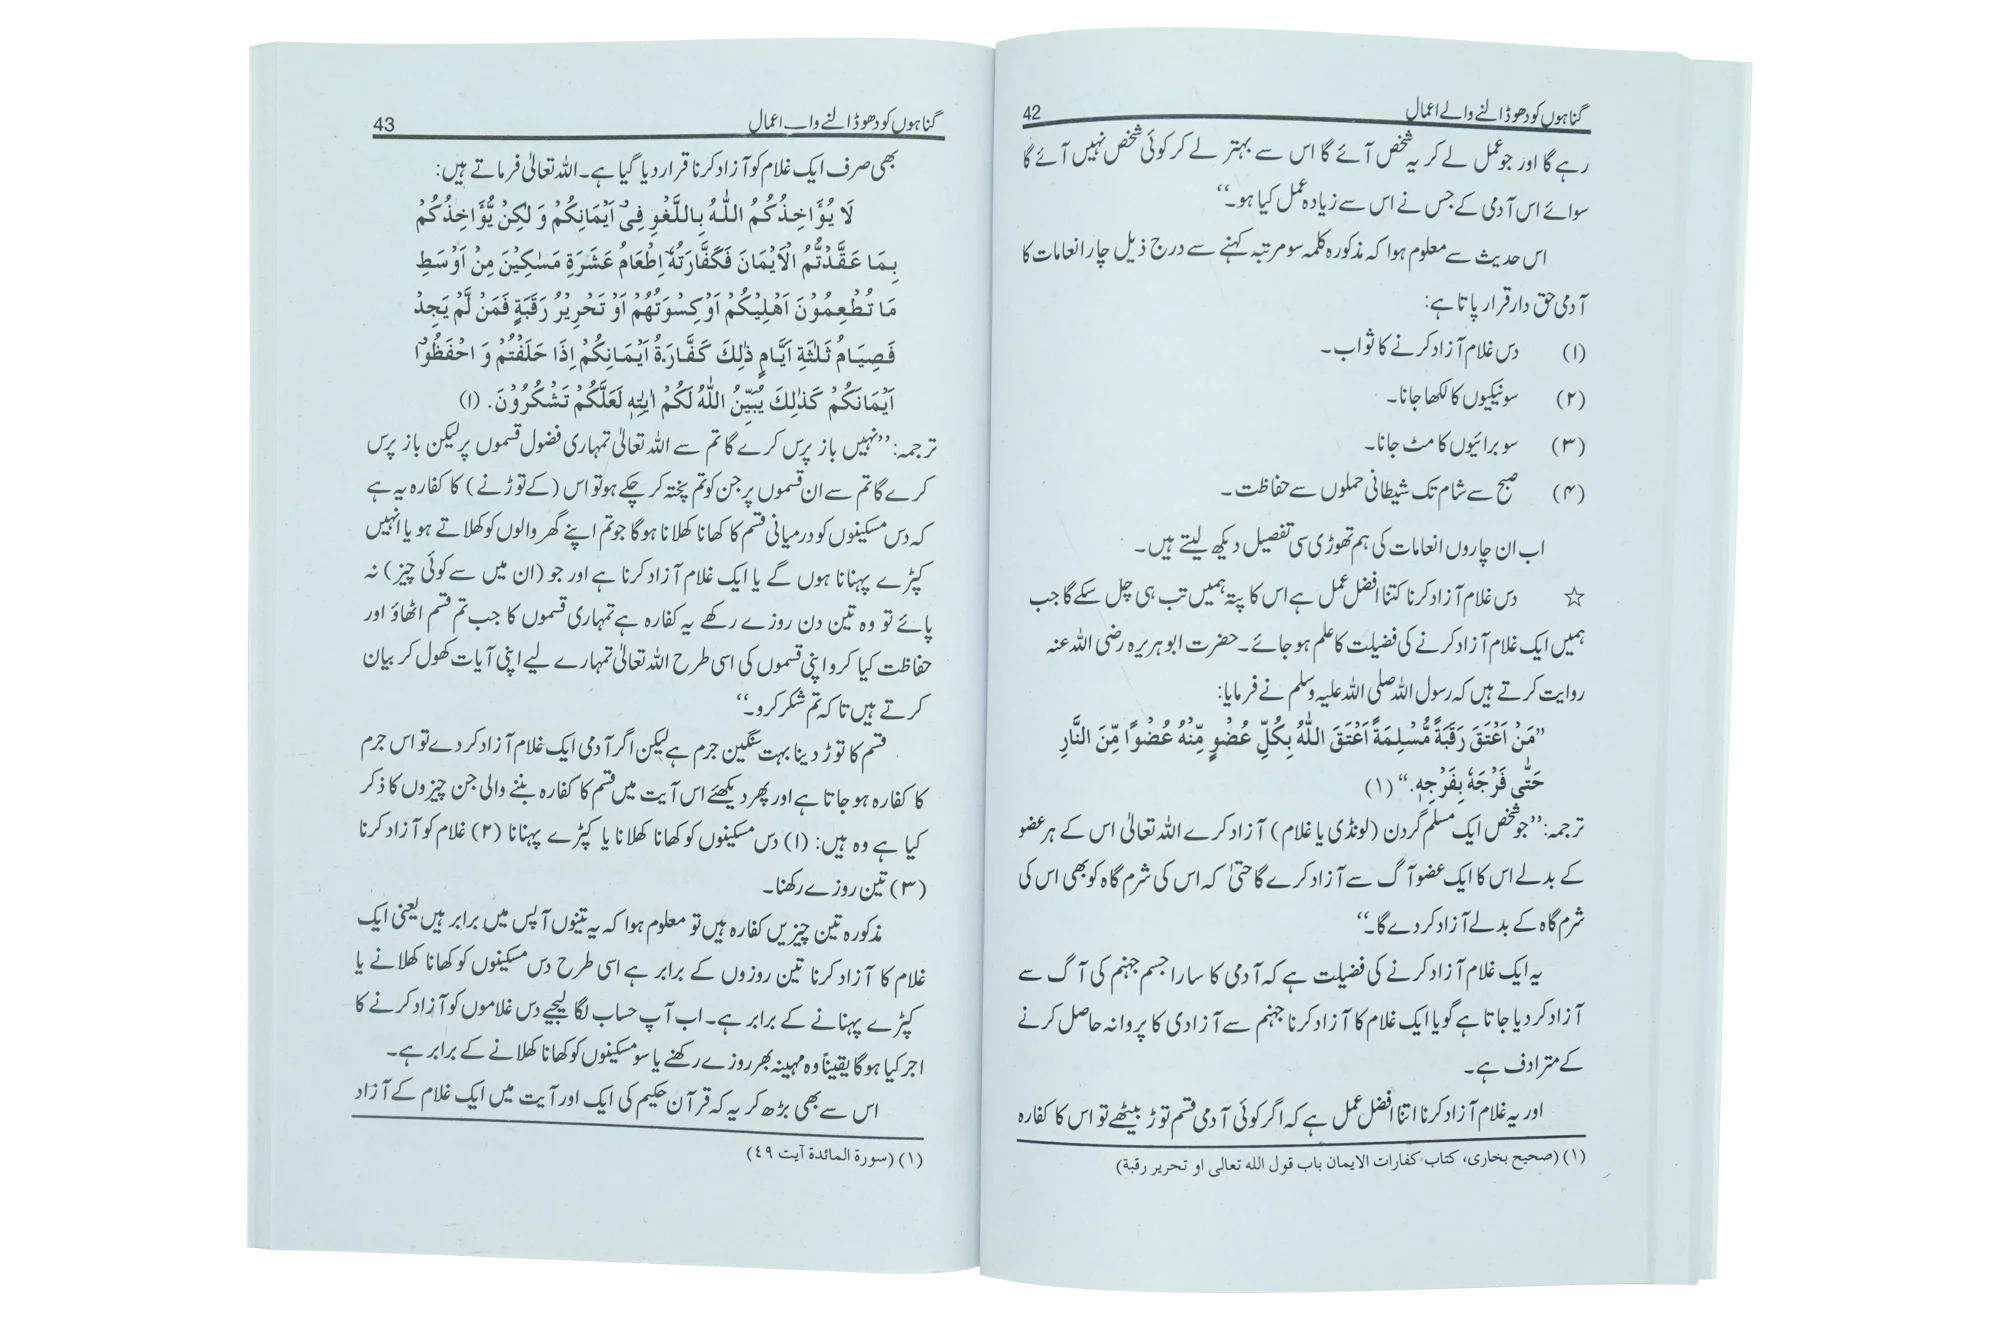 گناہوں کو دھو ڈالنے والے اعمال 42
رہے گا اور جو عمل لے کر یہ شخص آئے گا اس سے بہتر لے کر کوئی شخص نہیں آئے گا
سوائے اس آدمی کے جس نے اس سے زیادہ عمل کیا ہو۔‘‘
اس حدیث سے معلوم ہوا کہ مذکورہ کلمہ سو مرتبہ کہنے سے درج ذیل چار انعامات کا
آدمی حق دار قرار پاتا ہے:
(۱) دس غلام آزاد کرنے کا ثواب۔
(۲) سو نیکیوں کا لکھا جانا۔
(۳) سو برائیوں کا مٹ جانا۔
(۴) صبح سے شام تک شیطانی حملوں سے حفاظت۔
اب ان چاروں انعامات کی ہم تھوڑی سی تفصیل دیکھ لیتے ہیں۔
☆ دس غلام آزاد کرنا کتنا افضل عمل ہے اس کا پتہ ہمیں تب ہی چل سکے گا جب
ہمیں ایک غلام آزاد کرنے کی فضیلت کا علم ہو جائے۔ حضرت ابو ہریرہ رضی اللہ عنہ
روایت کرتے ہیں کہ رسول اللہ صلی اللہ علیہ وسلم نے فرمایا:
”مَنْ اَعْتَقَ رَقَبَةً مُّسْلِمَةً اَعْتَقَ اللّٰهُ بِكُلِّ عُضْوٍ مِّنْهُ عُضْوًا مِّنَ النَّارِ
حَتّٰى فَرْجَهٗ بِفَرْجِهٖ.“ (۱)
ترجمہ: ’’جو شخص ایک مسلم گردن (لونڈی یا غلام) آزاد کرے اللہ تعالیٰ اس کے ہر عضو
کے بدلے اس کا ایک عضو آگ سے آزاد کرے گا حتیٰ کہ اس کی شرم گاہ کو بھی اس کی
شرم گاہ کے بدلے آزاد کر دے گا۔‘‘
یہ ایک غلام آزاد کرنے کی فضیلت ہے کہ آدمی کا سارا جسم جہنم کی آگ سے
آزاد کر دیا جاتا ہے گویا ایک غلام کا آزاد کرنا جہنم سے آزادی کا پروانہ حاصل کرنے
کے مترادف ہے۔
اور یہ غلام آزاد کرنا اتنا افضل عمل ہے کہ اگر کوئی آدمی قسم توڑ بیٹھے تو اس کا کفارہ
(۱) (صحیح بخاری، کتاب کفارات الایمان باب قول اللہ تعالی او تحریر رقبة)
گناہوں کو دھو ڈالنے والے اعمال 43
بھی صرف ایک غلام کو آزاد کرنا قرار دیا گیا ہے۔ اللہ تعالیٰ فرماتے ہیں:
لَا يُؤَاخِذُكُمُ اللّٰهُ بِاللَّغْوِ فِىْٓ اَيْمَانِكُمْ وَ لٰكِنْ يُّؤَاخِذُكُمْ
بِمَا عَقَّدْتُّمُ الْاَيْمَانَ فَكَفَّارَتُهٗٓ اِطْعَامُ عَشَرَةِ مَسٰكِيْنَ مِنْ اَوْسَطِ
مَا تُطْعِمُوْنَ اَهْلِيْكُمْ اَوْ كِسْوَتُهُمْ اَوْ تَحْرِيْرُ رَقَبَةٍ فَمَنْ لَّمْ يَجِدْ
فَصِيَامُ ثَلٰثَةِ اَيَّامٍ ذٰلِكَ كَفَّارَةُ اَيْمَانِكُمْ اِذَا حَلَفْتُمْ وَ احْفَظُوْٓا
اَيْمَانَكُمْ كَذٰلِكَ يُبَيِّنُ اللّٰهُ لَكُمْ اٰيٰتِهٖ لَعَلَّكُمْ تَشْكُرُوْنَ. (۱)
ترجمہ: ’’نہیں باز پرس کرے گا تم سے اللہ تعالیٰ تمہاری فضول قسموں پر لیکن باز پرس
کرے گا تم سے ان قسموں پر جن کو تم پختہ کر چکے ہو تو اس (کے توڑنے) کا کفارہ یہ ہے
کہ دس مسکینوں کو درمیانی قسم کا کھانا کھلانا ہوگا جو تم اپنے گھر والوں کو کھلاتے ہو یا انہیں
کپڑے پہنانا ہوں گے یا ایک غلام آزاد کرنا ہے اور جو (ان میں سے کوئی چیز) نہ
پائے تو وہ تین دن روزے رکھے یہ کفارہ ہے تمہاری قسموں کا جب تم قسم اٹھاؤ اور
حفاظت کیا کرو اپنی قسموں کی اسی طرح اللہ تعالیٰ تمہارے لیے اپنی آیات کھول کر بیان
کرتے ہیں تا کہ تم شکر کرو۔‘‘
قسم کا توڑ دینا بہت سنگین جرم ہے لیکن اگر آدمی ایک غلام آزاد کر دے تو اس جرم
کا کفارہ ہو جاتا ہے اور پھر دیکھئے اس آیت میں قسم کا کفارہ بننے والی جن چیزوں کا ذکر
کیا ہے وہ ہیں: (۱) دس مسکینوں کو کھانا کھلانا یا کپڑے پہنانا (۲) غلام کو آزاد کرنا
(۳) تین روزے رکھنا۔
مذکورہ تین چیزیں کفارہ ہیں تو معلوم ہوا کہ یہ تینوں آپس میں برابر ہیں یعنی ایک
غلام کا آزاد کرنا تین روزوں کے برابر ہے اسی طرح دس مسکینوں کو کھانا کھلانے یا
کپڑے پہنانے کے برابر ہے۔ اب آپ حساب لگا لیجیے دس غلاموں کو آزاد کرنے کا
اجر کیا ہوگا یقیناً وہ مہینہ بھر روزے رکھنے یا سو مسکینوں کو کھانا کھلانے کے برابر ہے۔
اس سے بھی بڑھ کر یہ کہ قرآن حکیم کی ایک اور آیت میں ایک غلام کے آزاد
(۱) (سورة المائدة آیت ٤٩)